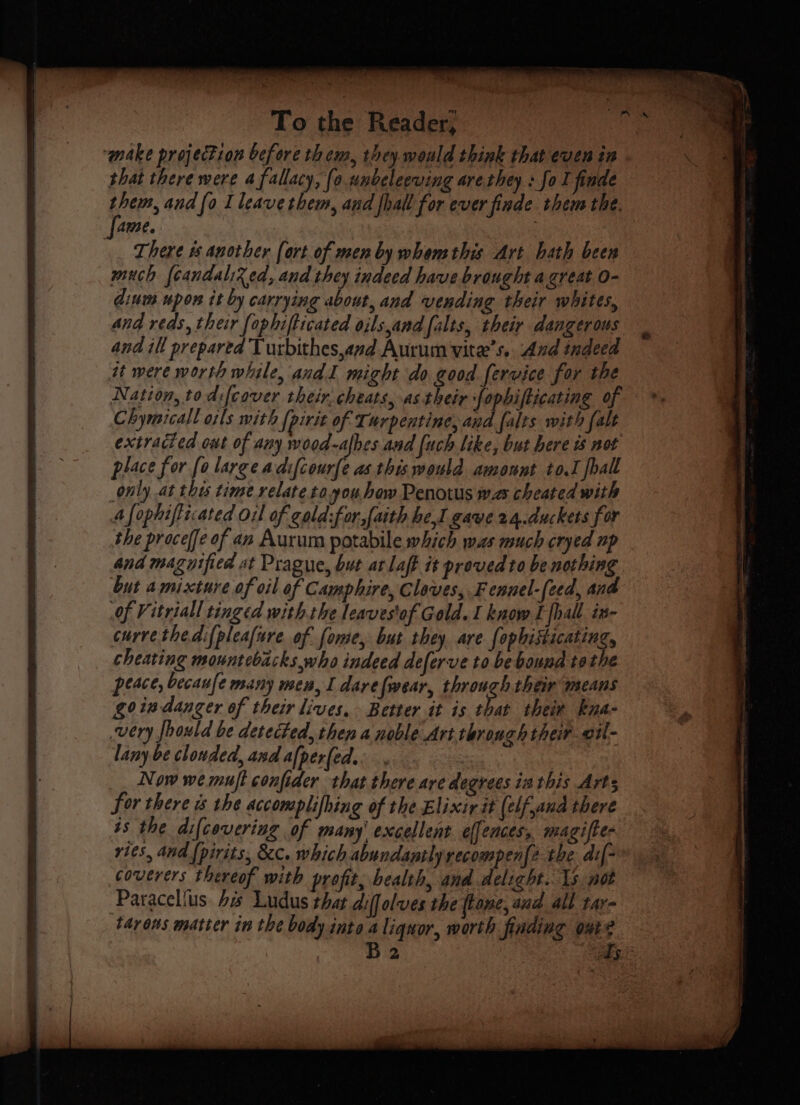 To the Reader,
make projection before them, they would think that even in
that there were a fallacy, ſo unbeleeving are they : ſo I finde
them, and ſo I leave them, and ſhall for ever finde them the
ſame.
There is another ſort of men by whom this Art hath been
much ſcandalized, and they indeed have brought a great O-
dium upon it by carrying about, and vending their whites,
and reds, their ſophiſticated oils, and ſalts, their dangerous
and ill prepared Turbithes, and Aurum vitæ's. And indeed
it were worth while, and I might do good ſervice for the
Nation, to diſcover their cheats, as their ſophiſticating of
Chymicall oils with ſpirit of Turpentine, and ſalts with ſalt
extracted out of any wood-aſhes and ſuch like, but here is not
place for ſo large a diſcourſe as this would amount to. I ſhall
only at this time relate to you how Penotus was cheated with
a ſophiſticated Oil of gold: for, ſaith he, I gave 24. duckets for
the proceſſe of an Aurum potabile which was much cryed up
and magnified at Prague, but at laſt it proved to be nothing
but a mixture of oil of Camphire, Cloves, Fennel-ſeed, and
of Vitriall tinged with the leaves of Gold. I know I ſhall in-
curre the diſpleaſure of ſome, but they are ſophiſticating,
cheating mountebacks, who indeed deſerve to be bound to the
peace, becauſe many men, I dare ſwear, through their means
go in danger of their lives. Better it is that their kna-
very ſhould be detected, then a noble Art through their vil-
lany be clouded, and aſperſed.
Now we muſt conſider that there are degrees in this Art;
for there is the accompliſhing of the Elixir it ſelf, and there
is the diſcovering of many excellent eſſences, magiſte-
ries, and ſpirits, &c. which abundantly recompenſe the diſ-
coverers thereof with profit, health, and delight. Is not
Paracelſus his Ludus that diſſolves the ſtone, and all tar-
tarous matter in the body into a liquor, worth finding out?
B 2 Is